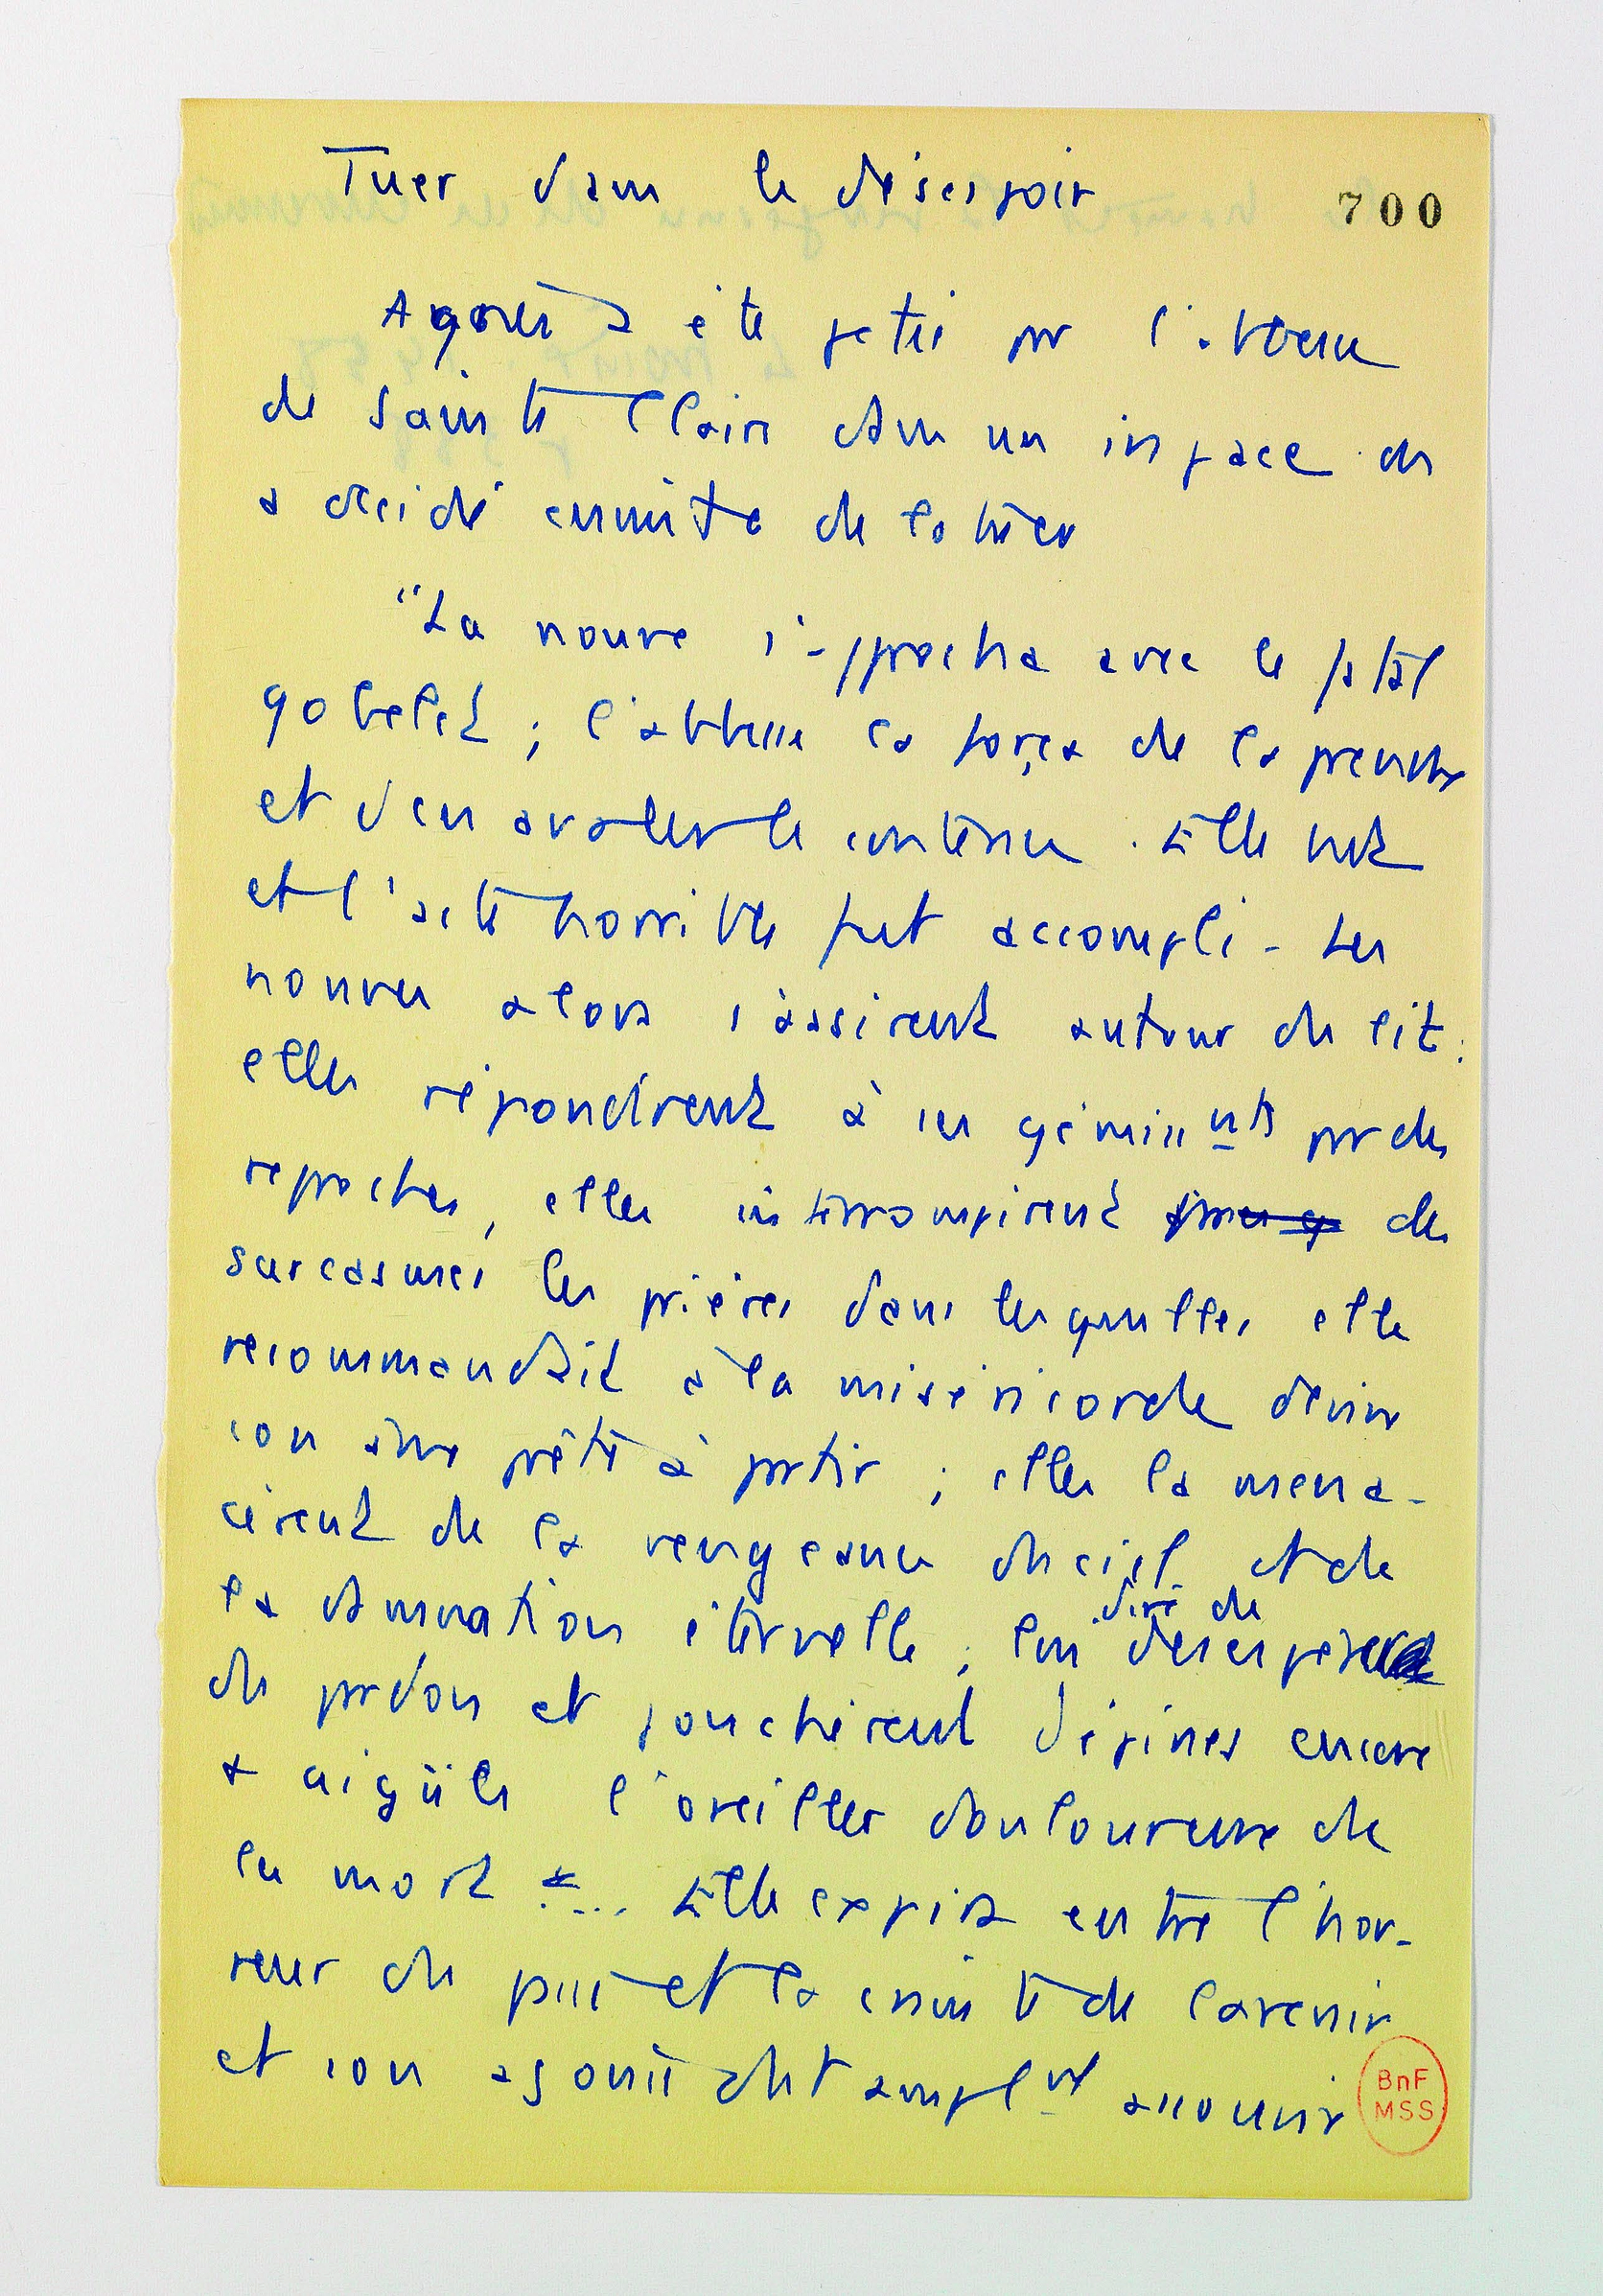 Tuer dans le désespoir
700
Agnès a été jetée par l'abbesse
de Sainte Claire dans un in pace. On
a décidé ensuite de la tuer
"La nonne s'approcha avec le fatal
gobelet ; l'abbesse la força de le prendre
et d'en avaler le contenu. Elle but
et l'acte horrible fut accompli - Les
nonnes alors s'assirent autour du lit :
elles répondirent à ses gémissnts par des
reproches, elles interrompirent de
sarcasmes les prières dans lesquelles elle
recommandait à la miséricorde divine
son âme prête à partir ; elles la mena-
cèrent de la vengeance du ciel et de
la damnation éternelle ; lui dire de
désespérer
du pardon et jonchèrent d'épines encore
+ aigües l'oreiller douloureux de
la mort .... Elle expira entre l'hor-
reur du passé et la crainte de l'avenir
et son agonie dut amplnt assouvir
BnF
MSS